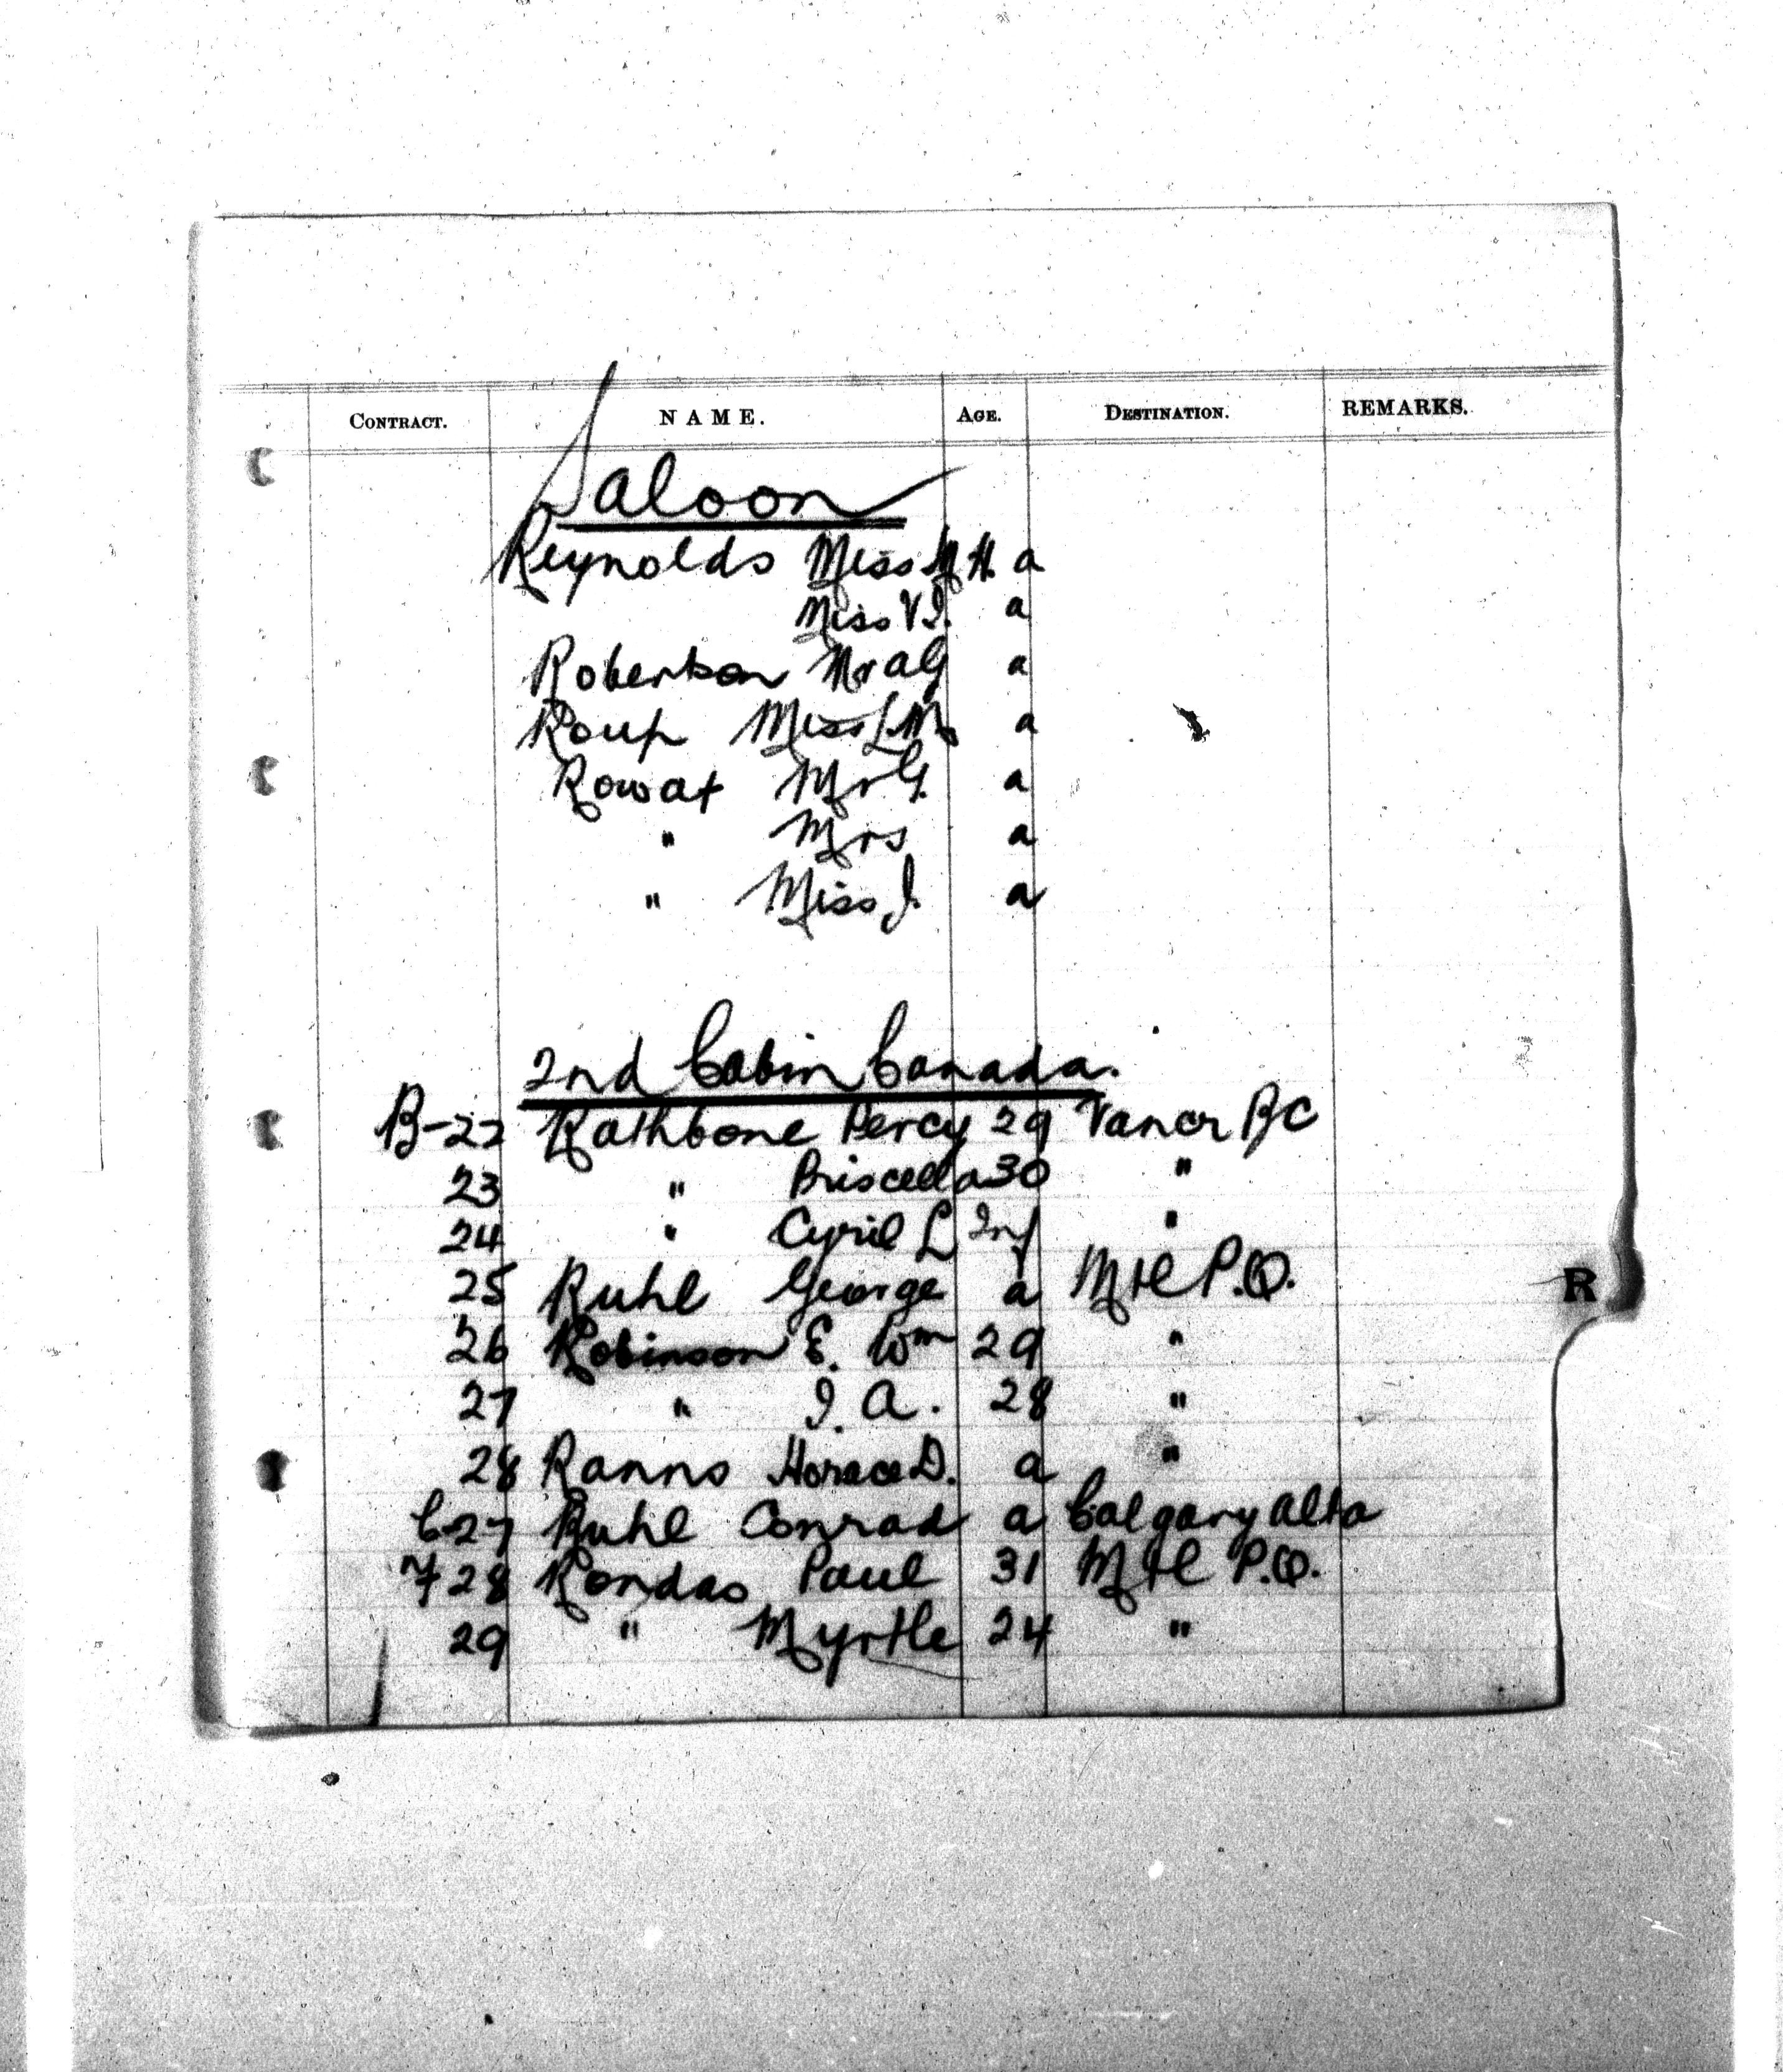 CONTRACT. NAME. AGE. DESTINATION. REMARKS.
Saloon
Reynolds Miss M H. a
Miss V I. a
Robertson Mr A G a
Roup Miss L. M. a
Rowat Mr G. a
" Mrs a
" Miss J. a
2nd Cabin Canada.
B-22 Rathbone Percy 29 Vancr BC
23 " Priscella 30 "
24 " Cyril L Inf "
25 Ruhl George a Mtl P.Q.
R
26 Robinson E. Wm 29 "
27 " I. A. 28 "
28 Ranns Horace D. a "
C-27 Ruhl Conrad a Calgary Alta
7 28 Rondas Paul 31 Mtl P.Q.
29 " Myrtle 24 "